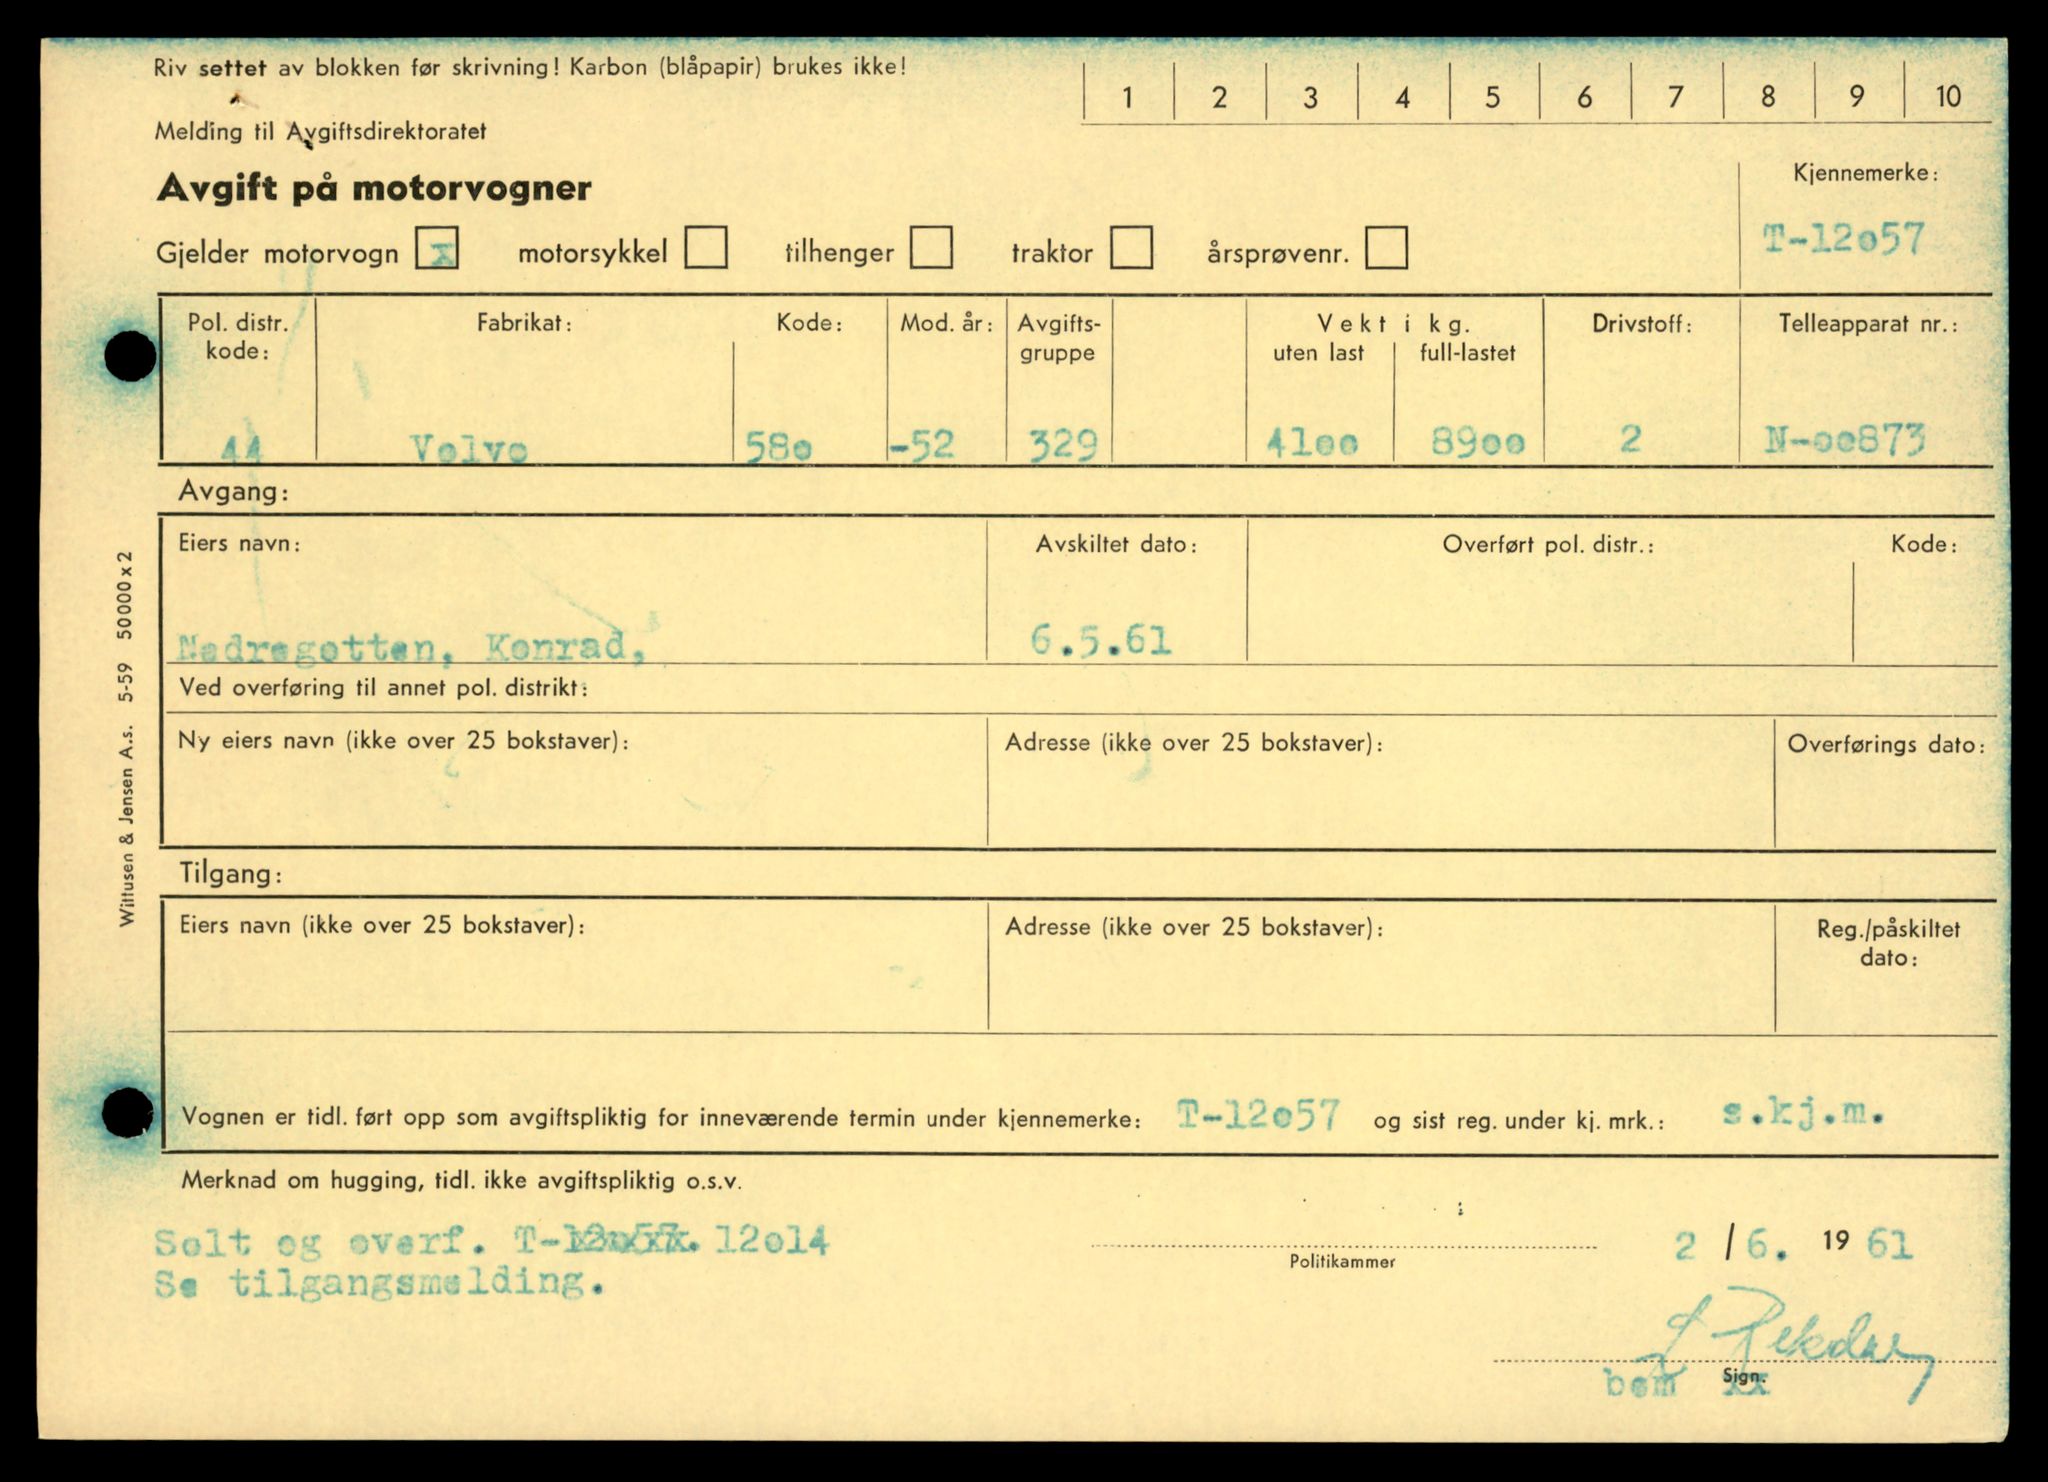 Riv settet av blokken før skrivning! Karbon (blåpapir) brukes ikke!
1 2 3 4 5 6 7 8 9 10
Melding til Avgiftsdirektoratet
Avgift på motorvogner
Kjennemerke:
T-12o57
Gjelder motorvogn x motorsykkel tilhenger traktor årsprøvenr.
Pol. distr. kode: Fabrikat: Kode: Mod. år: Avgifts-gruppe Vekt i kg. uten last full-lastet Drivstoff: Telleapparat nr.:
44 Volvo 58o -52 329 41oo 89oo 2 N-oo873
Avgang:
Eiers navn: Avskiltet dato: Overført pol. distr.: Kode:
Nedregotten, Konrad, 6.5.61
Ved overføring til annet pol. distrikt:
Ny eiers navn (ikke over 25 bokstaver): Adresse (ikke over 25 bokstaver): Overførings dato:
Tilgang:
Eiers navn (ikke over 25 bokstaver): Adresse (ikke over 25 bokstaver): Reg./påskiltet dato:
Vognen er tidl. ført opp som avgiftspliktig for inneværende termin under kjennemerke: T-12o57 og sist reg. under kj. mrk.: s.kj.m.
Merknad om hugging, tidl. ikke avgiftspliktig o.s.v.
Solt og overf. T-12o57. 12o14
Se tilgangsmelding.
Politikammer
2 / 6. 19 61
bem xx Sign.
Wittusen & Jensen A.s. 5-59 50000 x 2